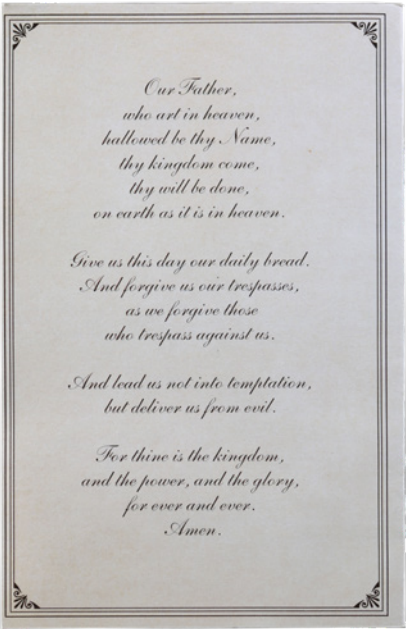 Our Father,
who art in heaven,
hallowed be thy Name,
thy kingdom come,
thy will be done,
on earth as it is in heaven.
Give us this day our daily bread.
And forgive us our trespasses,
as we forgive those
who trespass against us.
And lead us not into temptation,
but deliver us from evil.
For thine is the kingdom,
and the power, and the glory,
for ever and ever.
Amen.